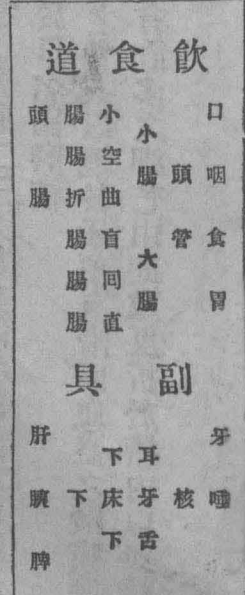 飲食道
口咽食胃
頭管
小腸大腸
小空曲盲囘直
腸腸折腸腸腸
頭腸
副具
牙唾
核
耳牙舌
下床下
下
肝脾